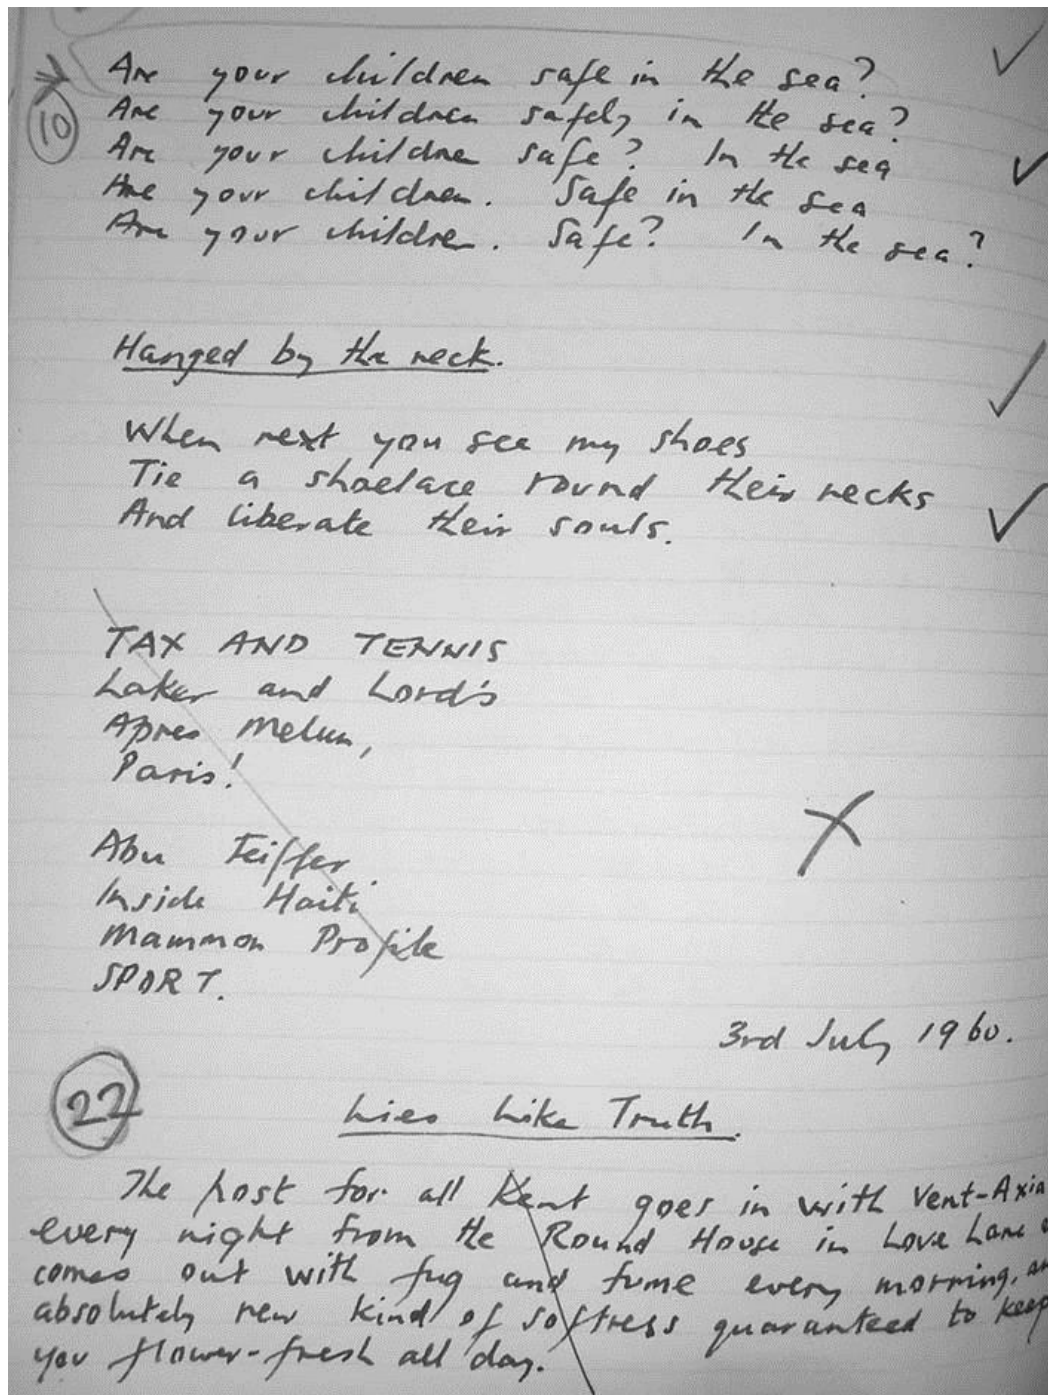 Are your children safe in the sea?
10
Are your children safely in the sea?
Are your children safe? In the sea
Are your children. Safe in the sea
Are your children. Safe? In the sea?
Hanged by the neck.
When next you see my shoes
Tie a shoelace round their necks
And liberate their souls.
TAX AND TENNIS
Laker and Lord's
Apres Melun,
Paris!
Abu Feiffer
Inside Haiti
Mammon Profile
SPORT.
3rd July 1960.
22
Lies Like Truth.
The post for all Kent goes in with Vent-Axia
every night from the Round House in Love Lane
comes out with fug and fume every morning, an
absolutely new kind of softness guaranteed to keep
you flower-fresh all day.